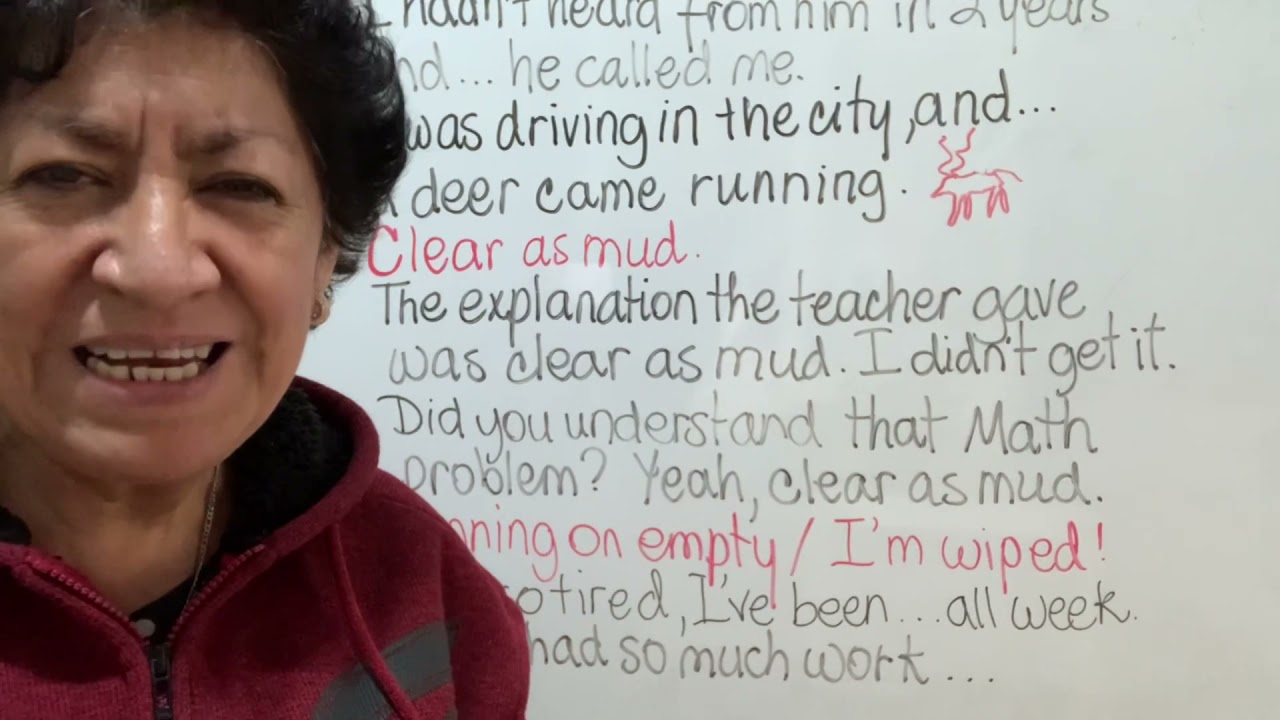 I hadn't heard from him in 2 years
nd... he called me.
was driving in the city, and...
deer came running.
Clear as mud.
The explanation the teacher gave
was clear as mud. I didn't get it.
Did you understand that Math
problem? Yeah, clear as mud.
nning on empty / I'm wiped!
so tired, I've been... all week.
had so much work...